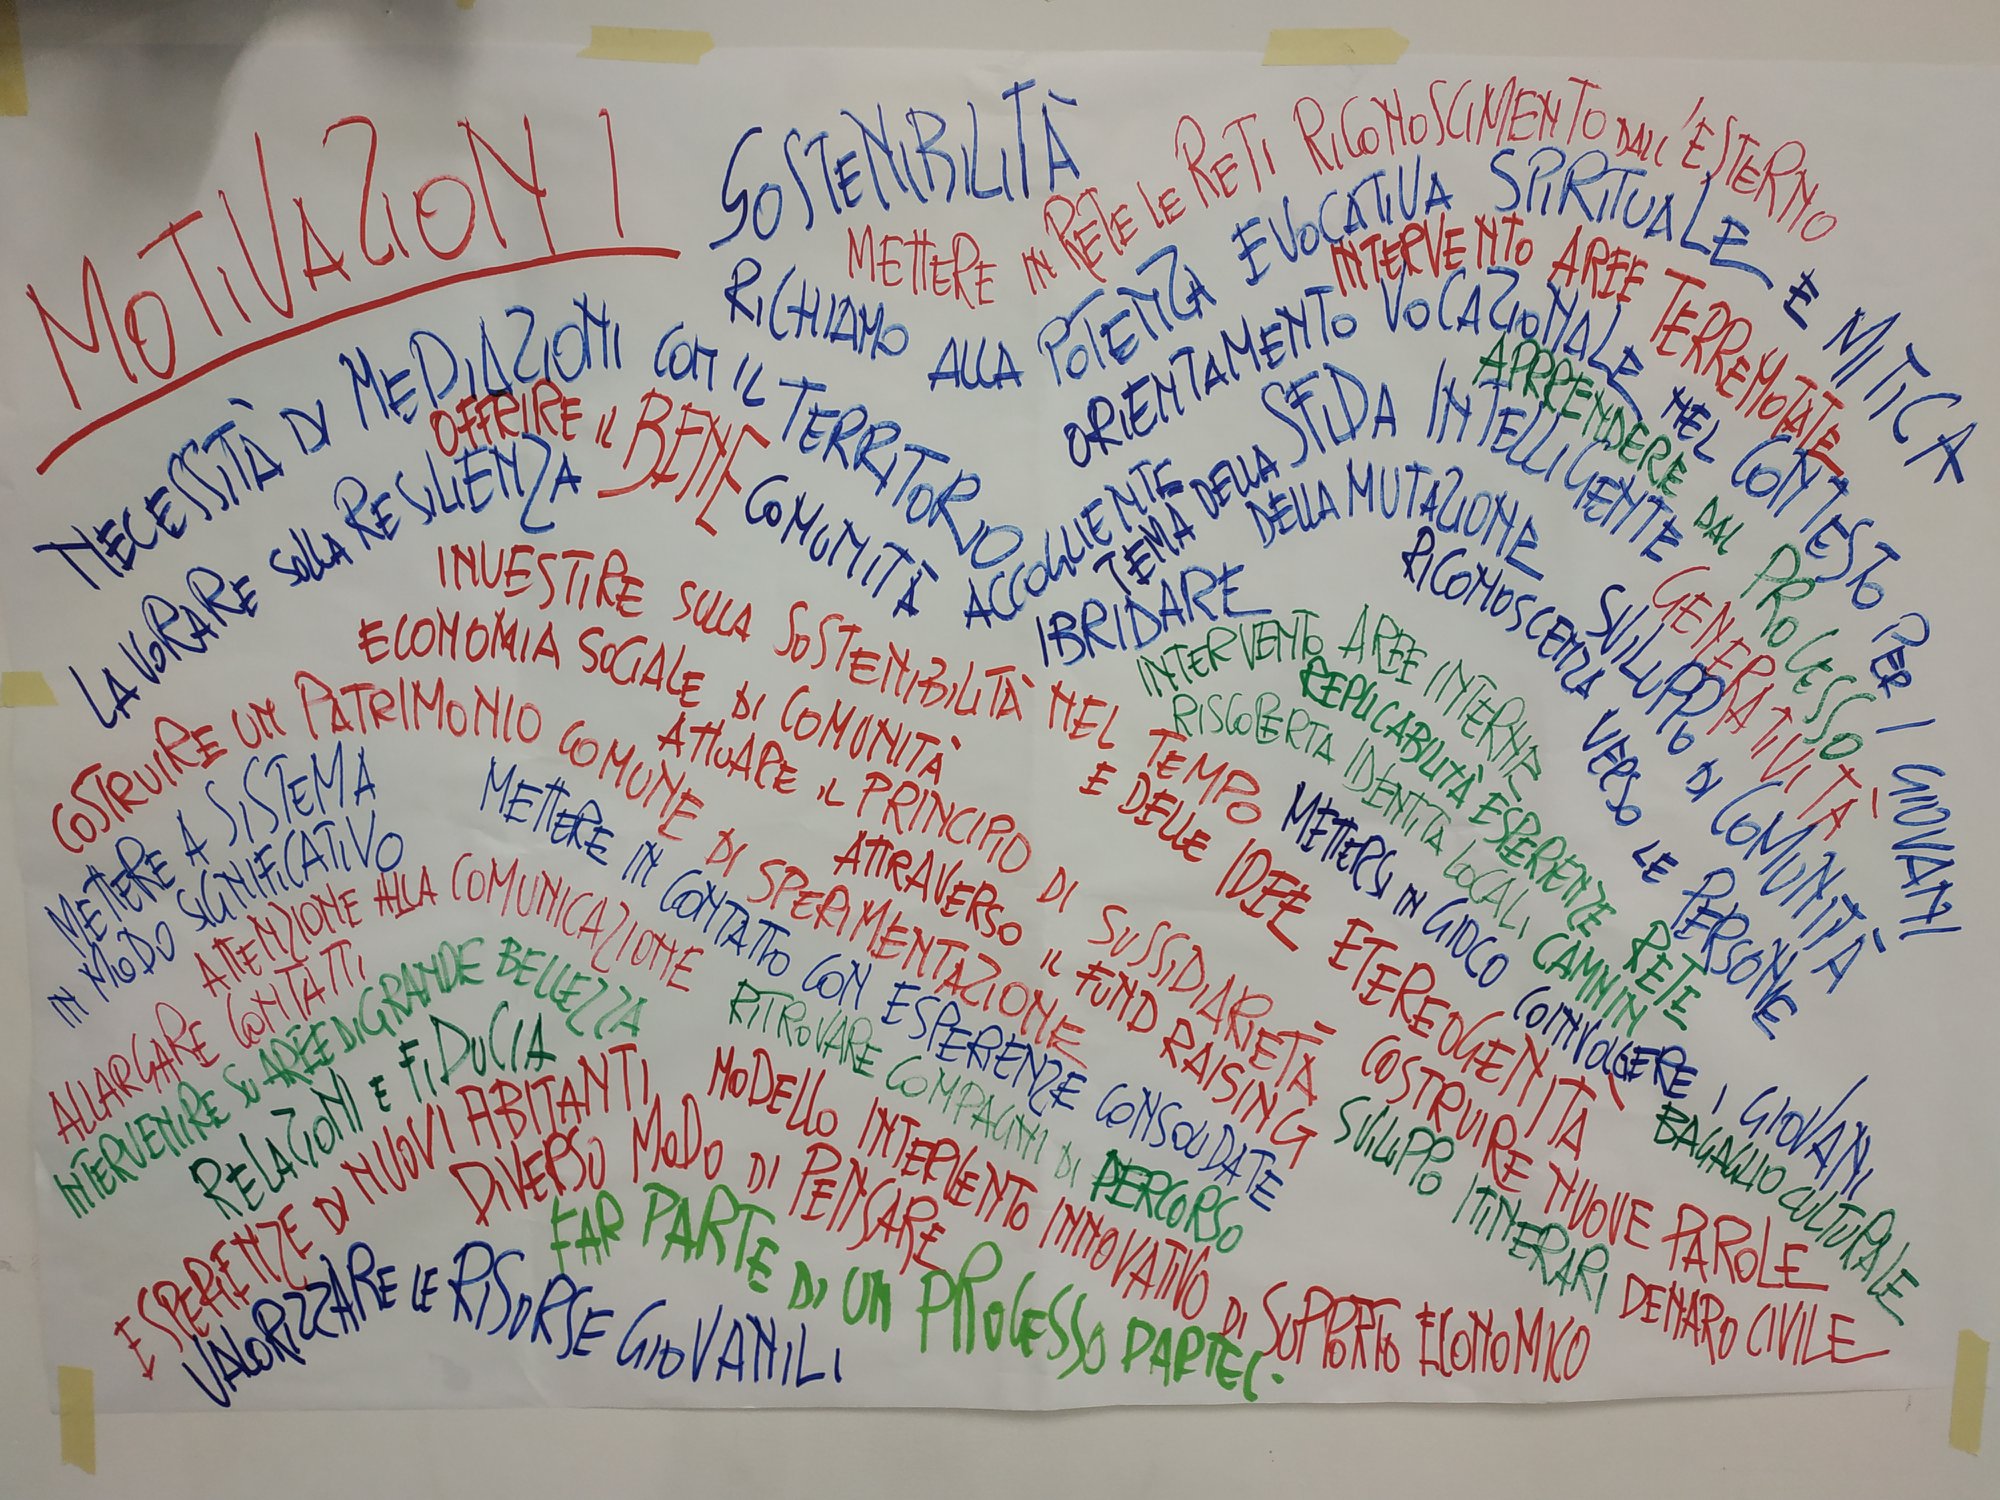 MOTIVAZIONI
SOSTENIBILITÀ
METTERE IN RETE LE RETI
RICONOSCIMENTO DALL'ESTERNO
RICHIAMO ALLA POTENZA EVOCATIVA SPIRITUALE E MITICA
INTERVENTO AREE TERREMOTATE
ORIENTAMENTO VOCAZIONALE NEL CONTESTO PER I GIOVANI
APPRENDERE DAL PROCESSO
NECESSITÀ DI MEDIAZIONI CON IL TERRITORIO
OFFRIRE IL BENE
LAVORARE SULLA RESILIENZA
COMUNITÀ ACCOGLIENTE
TEMA DELLA SFIDA INTELLIGENTE
GENERATIVITÀ
DELLA MUTAZIONE
SVILUPPO DI COMUNITÀ
IBRIDARE
RICONOSCENZA VERSO LE PERSONE
INVESTIRE SULLA SOSTENIBILITÀ NEL TEMPO
E DELLE IDEE
ETEREOGENITÀ
INTERVENTO AREE INTERNE
REPLICABILITÀ ESPERIENZE
RETE
RISCOPERTA IDENTITÀ LOCALI
CAMMINI
ECONOMIA SOCIALE DI COMUNITÀ
METTERSI IN GIOCO
COINVOLGERE I GIOVANI
COSTRUIRE UN PATRIMONIO COMUNE DI SPERIMENTAZIONE
ATTUARE IL PRINCIPIO DI SUSSIDIARIETÀ
ATTRAVERSO IL FUND RAISING
COSTRUIRE NUOVE PAROLE
BAGAGLIO CULTURALE
METTERE A SISTEMA
IN MODO SIGNIFICATIVO
METTERE IN CONTATTO CON ESPERIENZE CONSOLIDATE
SVILUPPO ITINERARI
DENARO CIVILE
ATTENZIONE ALLA COMUNICAZIONE
ALLARGARE CONTATTI
RITROVARE COMPAGNI DI PERCORSO
INTERVENIRE SU AREE DI GRANDE BELLEZZA
RELAZIONI E FIDUCIA
MODELLO INTERVENTO INNOVATIVO DI SUPPORTO ECONOMICO
ESPERIENZE DI NUOVI ABITANTI
DIVERSO MODO DI PENSARE
FAR PARTE DI UN PROCESSO PARTEC.
VALORIZZARE LE RISORSE GIOVANILI